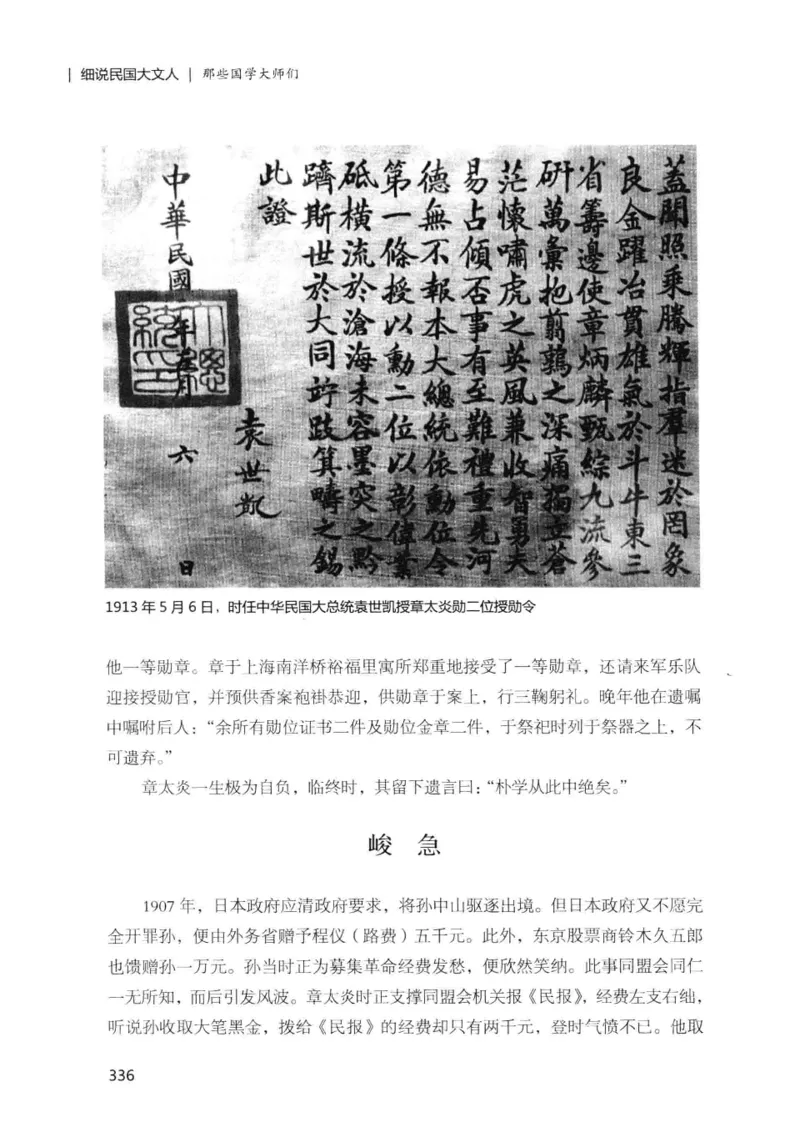 | 细说民国大文人 | 那些国学大师们
蓋聞照乘騰輝指羣迷於罔象
良金躍冶貫雄氣於斗牛東三
省籌邊使章炳麟甄綜九流參
研萬彙抱翦鶉之深痛獨立蒼
茫懷嘯虎之英風兼收智勇夫
易占傾否事有至難禮重先河
德無不報本大總統依勳位令
第一條授以勳二位以彰偉業
砥橫流於滄海未容墨突之黔
躋斯世於大同竚跂箕疇之錫
此證
袁世凱
中華民國 年 月 六 日
大總統印
1913 年 5 月 6 日，时任中华民国大总统袁世凯授章太炎勋二位授勋令
他一等勋章。章于上海南洋桥裕福里寓所郑重地接受了一等勋章，还请来军乐队
迎接授勋官，并预供香案袍褂恭迎，供勋章于案上，行三鞠躬礼。晚年他在遗嘱
中嘱咐后人：“余所有勋位证书二件及勋位金章二件，于祭祀时列于祭器之上，不
可遗弃。”
章太炎一生极为自负，临终时，其留下遗言曰：“朴学从此中绝矣。”
峻 急
1907 年，日本政府应清政府要求，将孙中山驱逐出境。但日本政府又不愿完
全开罪孙，便由外务省赠予程仪（路费）五千元。此外，东京股票商铃木久五郎
也馈赠孙一万元。孙当时正为募集革命经费发愁，便欣然笑纳。此事同盟会同仁
一无所知，而后引发风波。章太炎时正支撑同盟会机关报《民报》，经费左支右绌，
听说孙收取大笔黑金，拨给《民报》的经费却只有两千元，登时气愤不已。他取
336